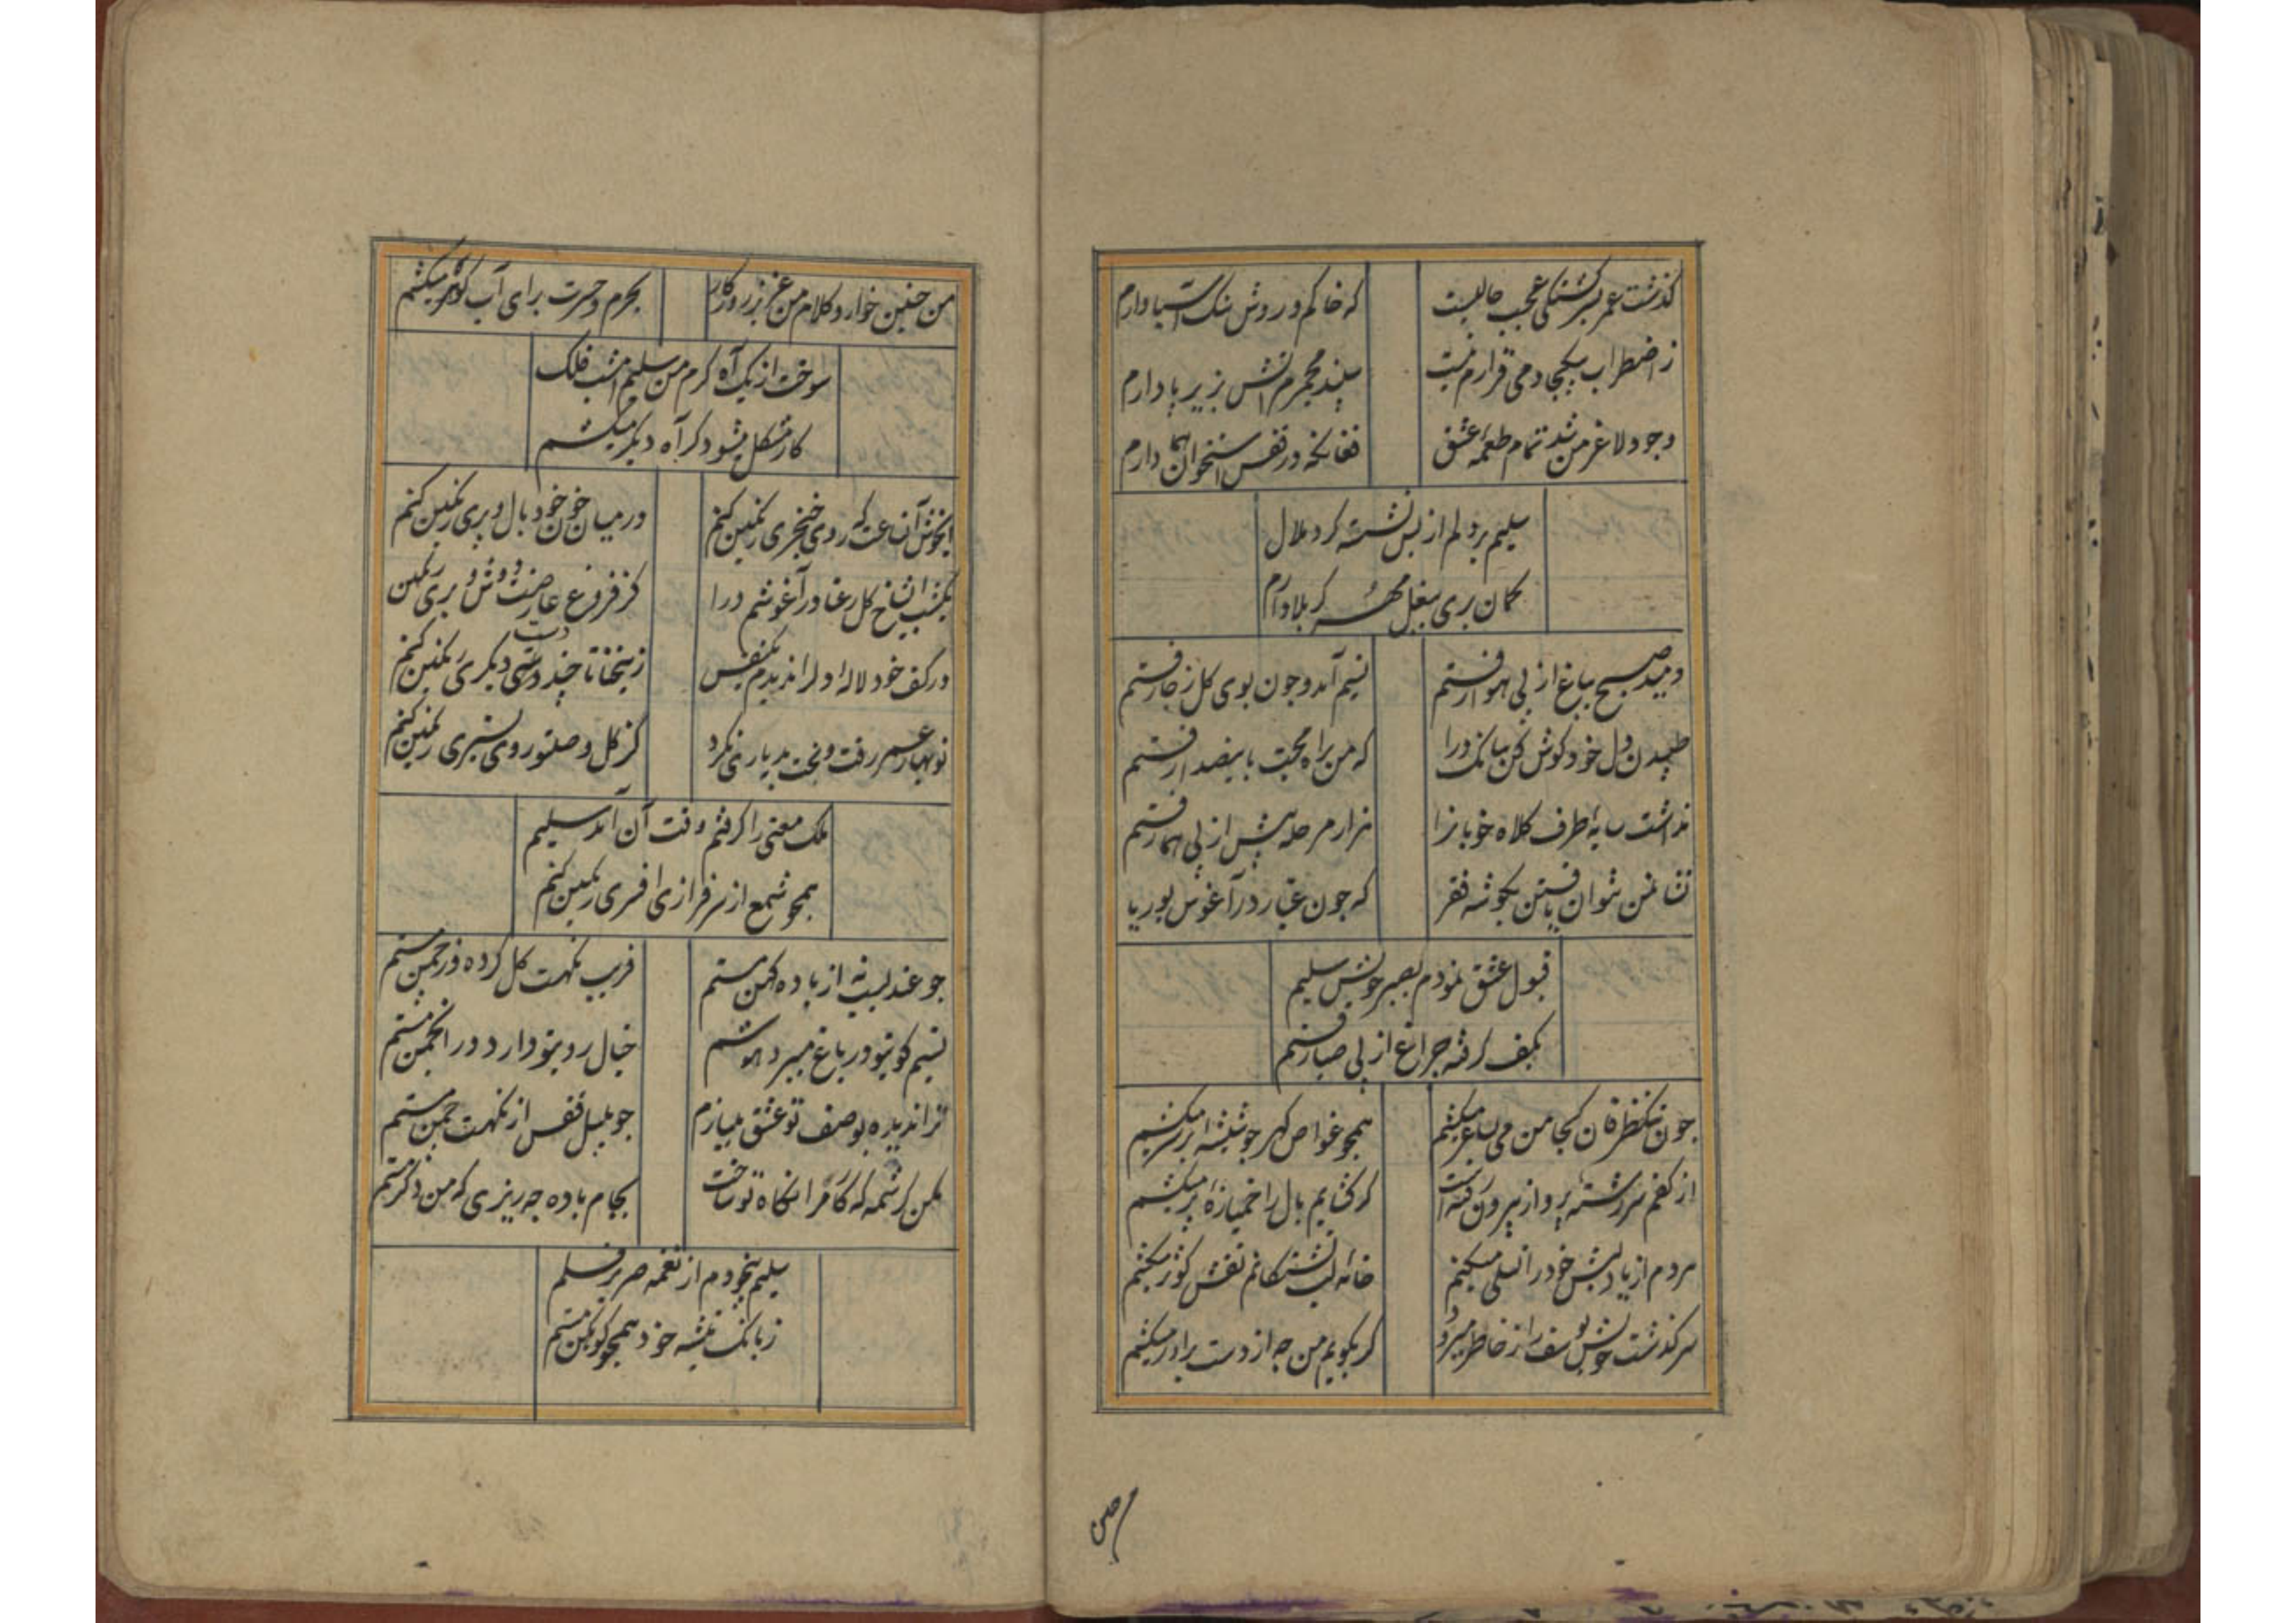 گذشت عمر بسرگشتگی عجب حالیست
که خاکم و روش سنک آسیا دارم
ز اضطراب بیکجا دمی قرارم نیست
سپند مجمرم آتش بزیر پا دارم
وجود لاغر من شد تمام طعمه عشق
فغانکه در قفس استخوان هما دارم
سلیم بر دلم از بس نشسته کرد ملال
کمان بری ببغل مهر کربلا دارم
دمید صبح بباغ از پی هوا رفتم
نسیم آمد و چون بوی کل ز جا رفتم
طپیدن دل خود کوش کن بیانک درا
که من براه محبت باینصدا رفتم
نداشت سایه اطرف کلاه خوبانرا
هزار مرحله پیش از پی هما رفتم
نشان من نتوان یافتن بکوشه فقر
که جون غبار در آغوش بوریا
قبول عشق نمودم بصبر خویش سلیم
بکف کرفته جراغ از پی صبا رفتم
جون تنکظرفان کجا من می بساغر میکشم
همچو غواص کهر جو شیشه بر سر میکشم
از کفم سررشته پرواز بیرون رفته است
کر کشایم بال را خمیازه بر پر میکشم
مردم از یاد لبش خود را تسلی میکنم
خانه لب تشنکانم نقش کوثر میکشم
سرکذشت خویش یوسف را ز خاطر میبرد
کر بکویم من چه از دست برادر میکشم
من
من چنین خوار و کلام من عزیز روزکار
بحرم و حسرت برای آب کوهر میکشم
سوخت از یک آه کرم من سلیم امشب فلک
کار مشکل میشود کر آه دیکر میکشم
ایخوش آنساعت که روی خنجری رنکین کنم
در میان خون خود بال و پری رنکین کنم
یکشب ای شاخ کل رعنا در آغوشم درا
کز فروغ عارضت دوش و بری رنکین
در کف خود لاله او را ندیدم یکنفس
زین حنا تا چند دست دیکری رنکین کنم
نوبهار عمر رفت و بخت بد یاری نکرد
کز کل وصلتو روی بستری رنکین کنم
ملک معنی را کرفتم وقت آن آمد سلیم
همچو شمع از سرفرازی افسری رنکین کنم
جو عندلیب نه از باده کهن مستم
فریب نکهت کل کرده در چمن مستم
نسیم کوی تو در باغ میبرد هوشم
خیال روی تو دارد در انجمن مستم
ترا ندیده بوصف تو عشق میبازم
جو بلبل قفس از نکهت چمن مستم
مکن کرشمه که کار مرا نکاه تو ساخت
بجام باده چه ریزی که من دکر مستم
سلیم بیخودم از نغمه صریر قلم
ز بانک تیشه خود همچو کوهکن مستم